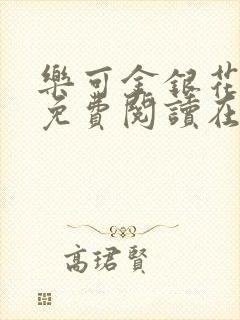 樂可金銀花
免費閱讀在
高珺賢